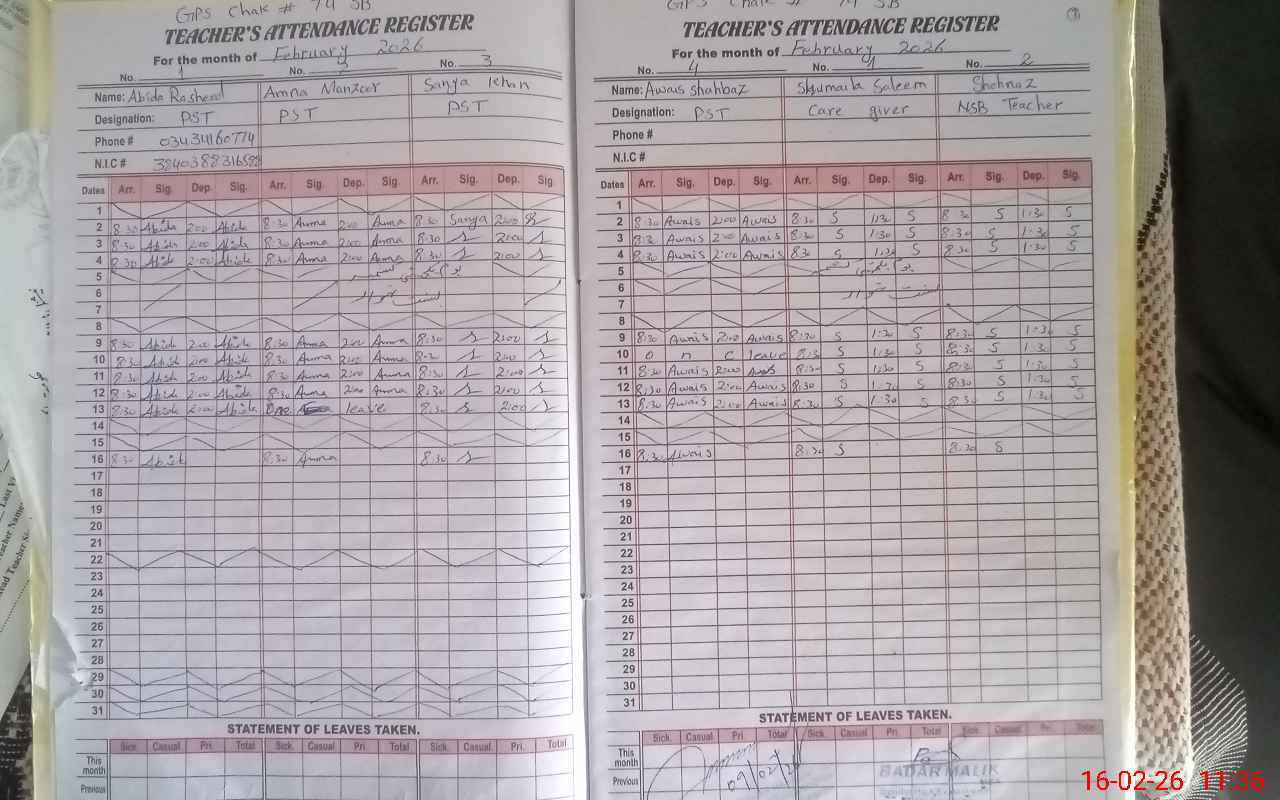 GPS Chak # 79 SB
TEACHER'S ATTENDANCE REGISTER
For the month of February 2026
No. 1 No. 2 No. 3
Name: Abida Rasheed Amna Manzoor Sanya Khan
Designation: PST PST PST
Phone # 03434160774
N.I.C #
Dates Arr. Sig. Dep. Sig. Arr. Sig. Dep. Sig. Arr. Sig. Dep. Sig.
1
2 8:30 Abida 2:00 Abida 8:30 Amna 2:00 Amna 8:30 Sanya 2:00
3 8:30 Abida 2:00 Abida 8:30 Amna 2:00 Amna 8:30 S 2:00 S
4 8:30 Abida 2:00 Abida 8:30 Amna 2:00 Amna 8:30 S 2:00 S
5
6
7
8
9 8:30 Abida 2:00 Abida 8:30 Amna 2:00 Amna 8:30 S 2:00 S
10 8:30 Abida 2:00 Abida 8:30 Amna 2:00 Amna 8:30 S 2:00 S
11 8:30 Abida 2:00 Abida 8:30 Amna 2:00 Amna 8:30 S 2:00 S
12 8:30 Abida 2:00 Abida 8:30 Amna 2:00 Amna 8:30 S 2:00 S
13 8:30 Abida 2:00 Abida One leave 8:30 S 2:00 S
14
15
16 8:30 Abida 8:30 Amna 8:30 S
17
18
19
20
21
22
23
24
25
26
27
28
29
30
31
STATEMENT OF LEAVES TAKEN.
Sick. Casual Pri. Total Sick. Casual Pri. Total Sick. Casual Pri. Total
This month
Previous
GPS Chak # 79 SB
TEACHER'S ATTENDANCE REGISTER
For the month of February 2026
No. 4 No. 1 No. 2
Name: Awais Shahbaz Shumaila Saleem Shehnaz
Designation: PST Care giver NSB Teacher
Phone #
N.I.C #
Dates Arr. Sig. Dep. Sig. Arr. Sig. Dep. Sig. Arr. Sig. Dep. Sig.
1
2 8:30 Awais 2:00 Awais 8:30 S 1:30 S 8:30 S 1:30 S
3 8:30 Awais 2:00 Awais 8:30 S 1:30 S 8:30 S 1:30 S
4 8:30 Awais 2:00 Awais 8:30 S 1:30 S 8:30 S 1:30 S
5
6
7
8
9 8:30 Awais 2:00 Awais 8:30 S 1:30 S 8:30 S 1:30 S
10 o n e leave 8:30 S 1:30 S 8:30 S 1:30 S
11 8:30 Awais 2:00 Awais 8:30 S 1:30 S 8:30 S 1:30 S
12 8:30 Awais 2:00 Awais 8:30 S 1:30 S 8:30 S 1:30 S
13 8:30 Awais 2:00 Awais 8:30 S 1:30 S 8:30 S 1:30 S
14
15
16 8:30 Awais 8:30 S 8:30 S
17
18
19
20
21
22
23
24
25
26
27
28
29
30
31
STATEMENT OF LEAVES TAKEN.
Sick. Casual Pri. Total Sick. Casual Pri. Total Sick. Casual Pri. Total
This month
Previous
09/02/26
BADAR MALIK
16-02-26 11:36